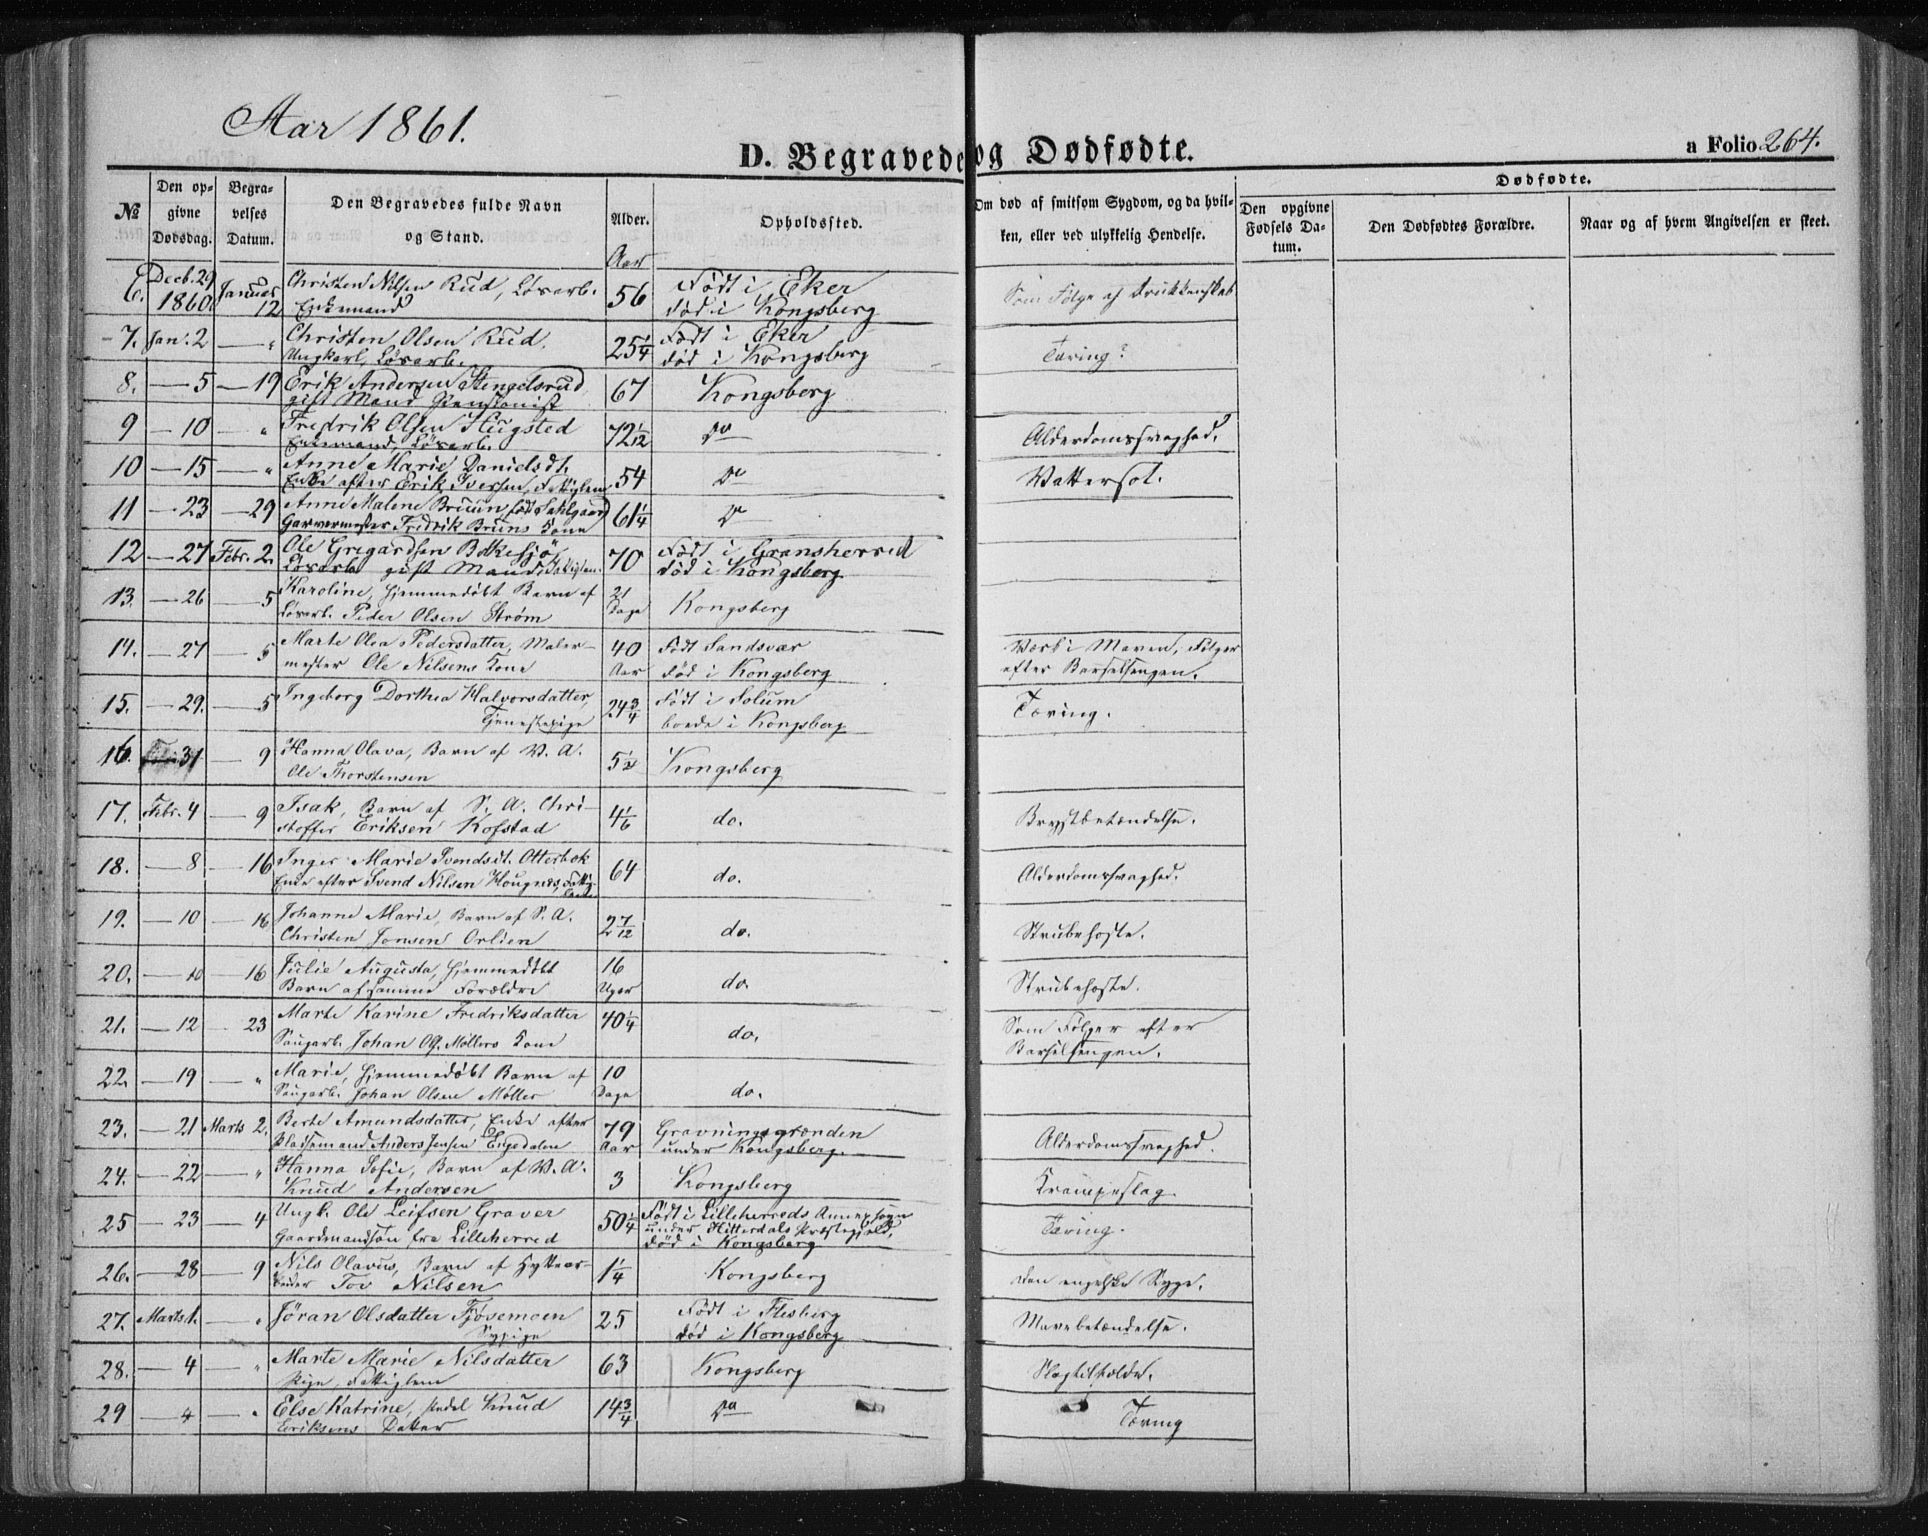 Aar 1861.
D. Begravede og Dødfødte.
a Folio 264.
№
Den opgivne Dødsdag.
Begravelses Datum.
Den Begravedes fulde Navn og Stand.
Alder.
Opholdssted.
Om død af smitsom Sygdom, og da hvilken, eller ved ulykkelig Hendelse.
Dødfødte.
Den opgivne Fødsels Datum.
Den Dødfødtes Forældre.
Naar og af hvem Angivelsen er skeet.
Aar
6. Decb. 29 1860 Januar 12 Christen Nilsen Rud, Løsarb. 56 Født i Eker Som Følge af Drukkenskab
Enkemand død i Kongsberg
7. Jan. 2 — " Christen Olsen Rud. 25 1/4 Født i Eker Tæring?
Ungkarl, Løsarb. død i Kongsberg
8. — 5 — 19 Erik Andersen Stengelsrud 67 Kongsberg
gift Mand Pensionist
9 — 10 " Fredrik Olsen Hugsted 72 1/12 Do Alderdomssvaghed.
Enkemand, Løsarb.
10 — 15 — " Anne Marie Danielsdt. 54 Do Vattersot.
Enke efter Erik Iversen, Fattiglem
11 — 23 — 29 Anne Malene Bruun, født Dahlgaard 61 1/4 Do
Garvermester Fredrik Bruns Kone
12 — 27 Febr. 2. Ole Gregardsen Bolkesjø 70 Født i Gransherred
Løsarb gift Mand, Fattiglem. død i Kongsberg
13. — 26 — 5 Karoline, hjemmedøbt Barn af 21 Dage Kongsberg
Løsarb. Peder Olsen Strøm
14. — 27 — 5 Marte Olea Pedersdatter, Maler- 40 Aar Født Sandsvær Værk i Maven, Følger
mester Ole Nilsens Kone død i Kongsberg efter Barselsengen.
15. — 29. — 5 Ingeborg Dorthea Halvorsdatter, 24 3/4 Født i Solum Tæring.
Tjenestepige boede i Kongsberg
16. 31 — 9 Hanna Olava, Barn af V. A. 5 1/2 Kongsberg
Ole Thorstensen
17. Febr. 4 — 9 Isak, Barn af S. A. Chri- 4 1/6 do. Brystbetændelse.
stoffer Eriksen Kofstad
18. — 8 — 16 Inger Marie Svendsdt. Otterbek 64 do. Alderdomssvaghed.
Enke efter Svend Nilsen Hougnes, Fattig-
19. — 10 — 16 Johanne Marie, Barn af S. A. 2 7/12 do. Strubehoste.
Christen Jonsen Orlien
20. — 10 — 16 Julie Augusta, hjemmedøbt 16 Uger do. Strubehoste.
Barn af samme Forældre
21. — 12 — 23 Marte Karine Fredriksdatter 40 1/4 do. Som Følger efter
Saugarb. Johan Ols. Møllers Kone Barselsengen.
22. — 19 — " Marie, hjemmedøbt Barn af 10 Dage do.
Saugarb. Johan Olsen Møller
23. — 21 Marts 2. Berte Amundsdatter, Enke efter 79 Aar Gravningsgrænden Alderdomssvaghed.
Pladsemand Anders Jensen Engedalen under Kongsberg.
24. — 22 — " Hanna Sofie, Barn af V. A. 3 Kongsberg Krampeslag.
Knud Andersen
25 — 23 — 4 Ungk. Ole Leifsen Graver 50 1/4 Født i Lilleherreds Annexsogn Tæring.
Gaardmandsøn fra Lilleherred under Hitterdals Præstegjeld,
død i Kongsberg
26. — 28 — 9 Nils Olavus, Barn af Hyttear- 1 1/4 Kongsberg Den engelske Syge.
beider Tov Nilsen
27. Marts 1. — " Jøran Olsdatter Fjøsemoen 25 Født i Flesberg Mavebetændelse.
Sypige død i Kongsberg
28. — 4 — " Marte Marie Nilsdatter 63 Kongsberg Slagtilfælde.
Pige, Fattiglem
29 — 4 — " Else Katrine, Knud 14 3/4 Do Tæring
Eriksens Datter